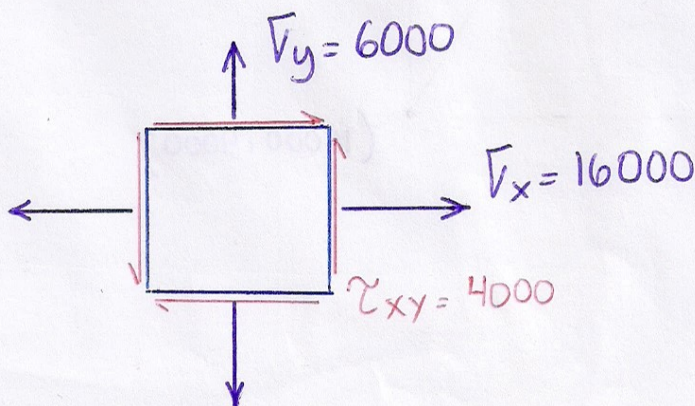 σy = 6000
σx = 16000
τxy = 4000